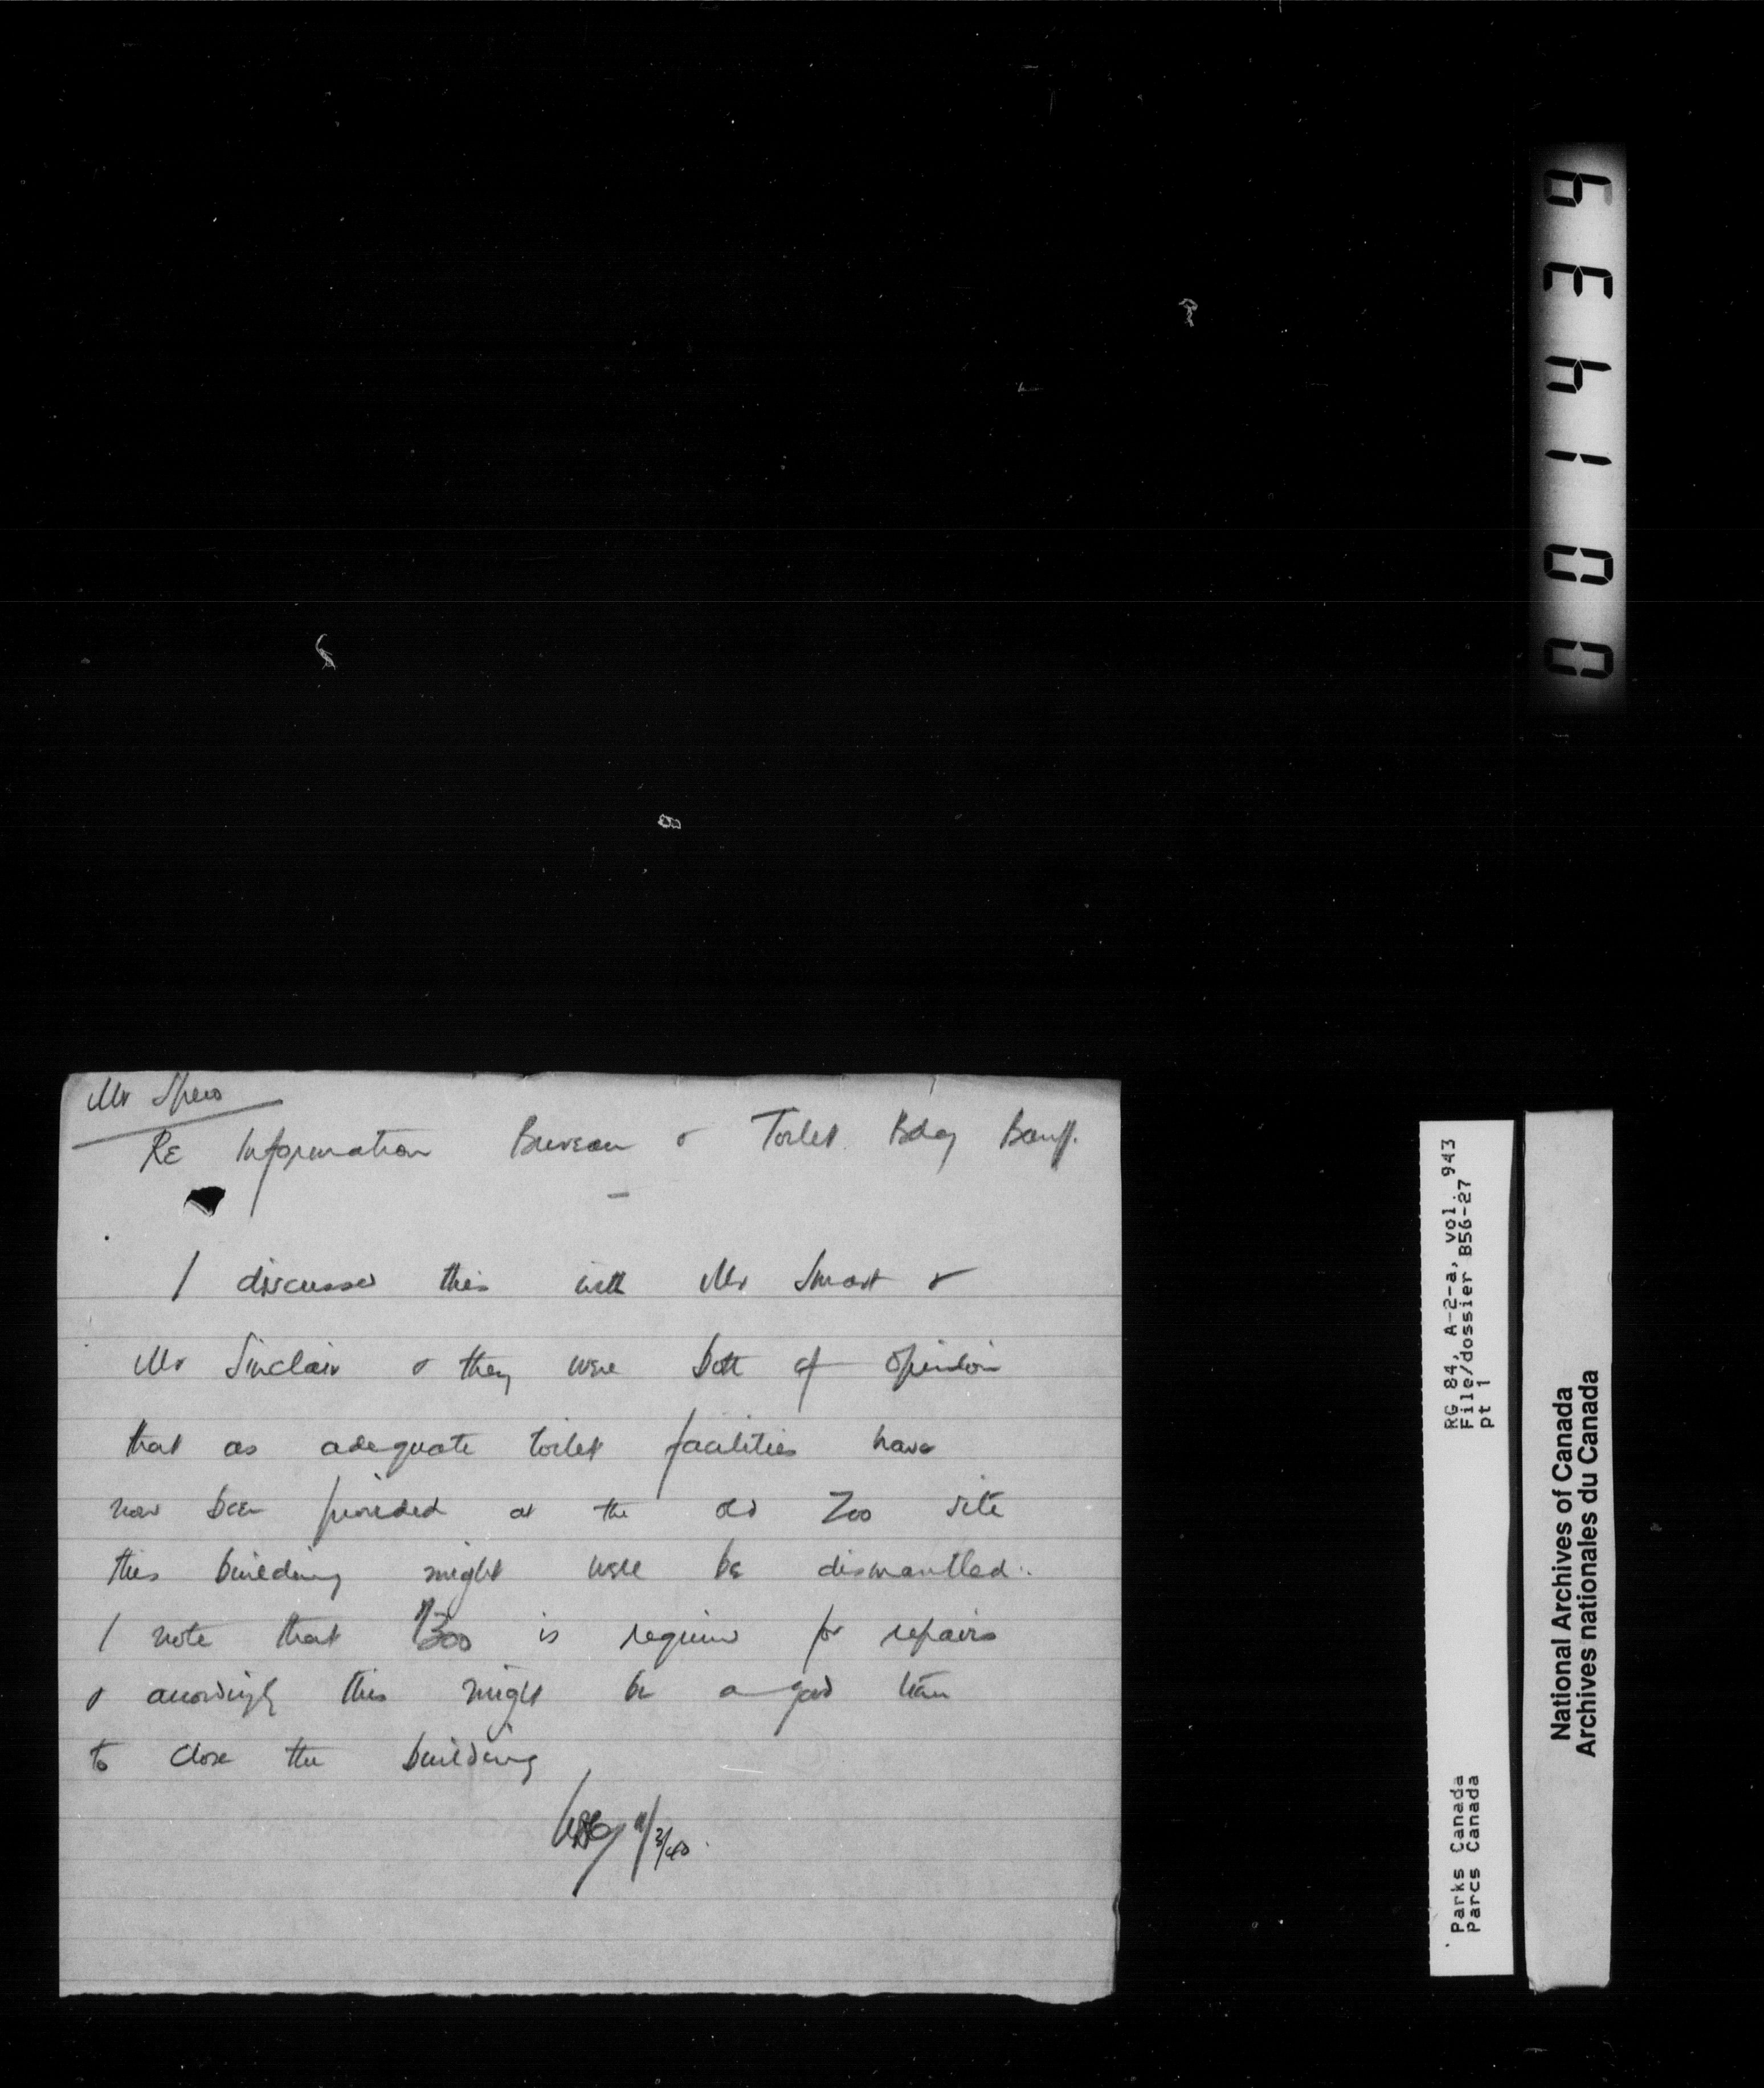 Mr Spero
Re Information Bureau & Toilet Bldg Banff.
I discussed this with Mr Smart &
Mr Sinclair & they were both of opinion
that as adequate toilet facilities have
now been provided at the old Zoo site
this building might well be dismantled.
I note that $300 is required for repairs
& accordingly this might be a good time
to close the building
11/3/40.
001439
RG 84, A-2-a, vol. 943
File/dossier B56-27
pt 1
Parks Canada
Parcs Canada
National Archives of Canada
Archives nationales du Canada